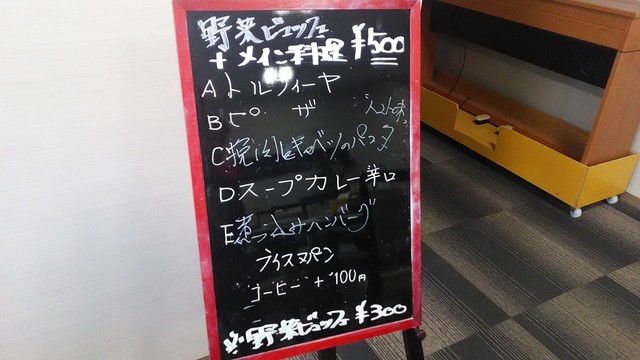 野菜ビュッフェ
+ メイン料理 ¥500
A トルティーヤ
B ピザ
C 挽肉とキャベツのパスタ
D スープカレー辛口
E 煮込みハンバーグ
ライス又パン
コーヒー +100円
※野菜ビュッフェ ¥300